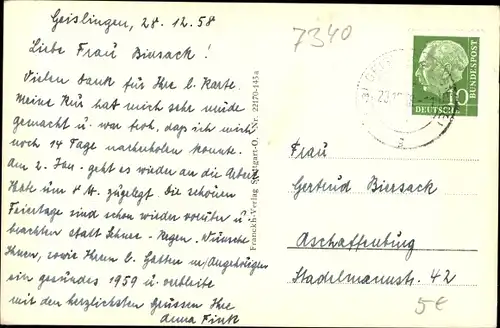 Geislingen, 28.12.58
Liebe Frau Biersack!
Vielen Dank für Ihre l. Karte.
Meine Kur hat mich sehr müde
gemacht u. war froh, daß ich mich
noch 14 Tage nacherholen konnte.
Am 2. Jan. geht es wieder an die Arbeit
Habe um 8 zugelegt. Die schönen
Feiertage sind schon wieder vorüber u.
brachten statt Schnee - Regen. Wünsche
Ihnen, sowie Ihrem l. Gatten u/Angehörigen
ein gesundes 1959 u. verbleibe
mit den herzlichsten Grüssen Ihre
Anna Fink
Franckh-Verlag Stuttgart-O. Nr. 22170-145a
7340
10
DEUTSCHE
BUNDESPOST
a
Frau
Gertrud Biersack
Aschaffenburg
Stadelmannstr. 42
5€